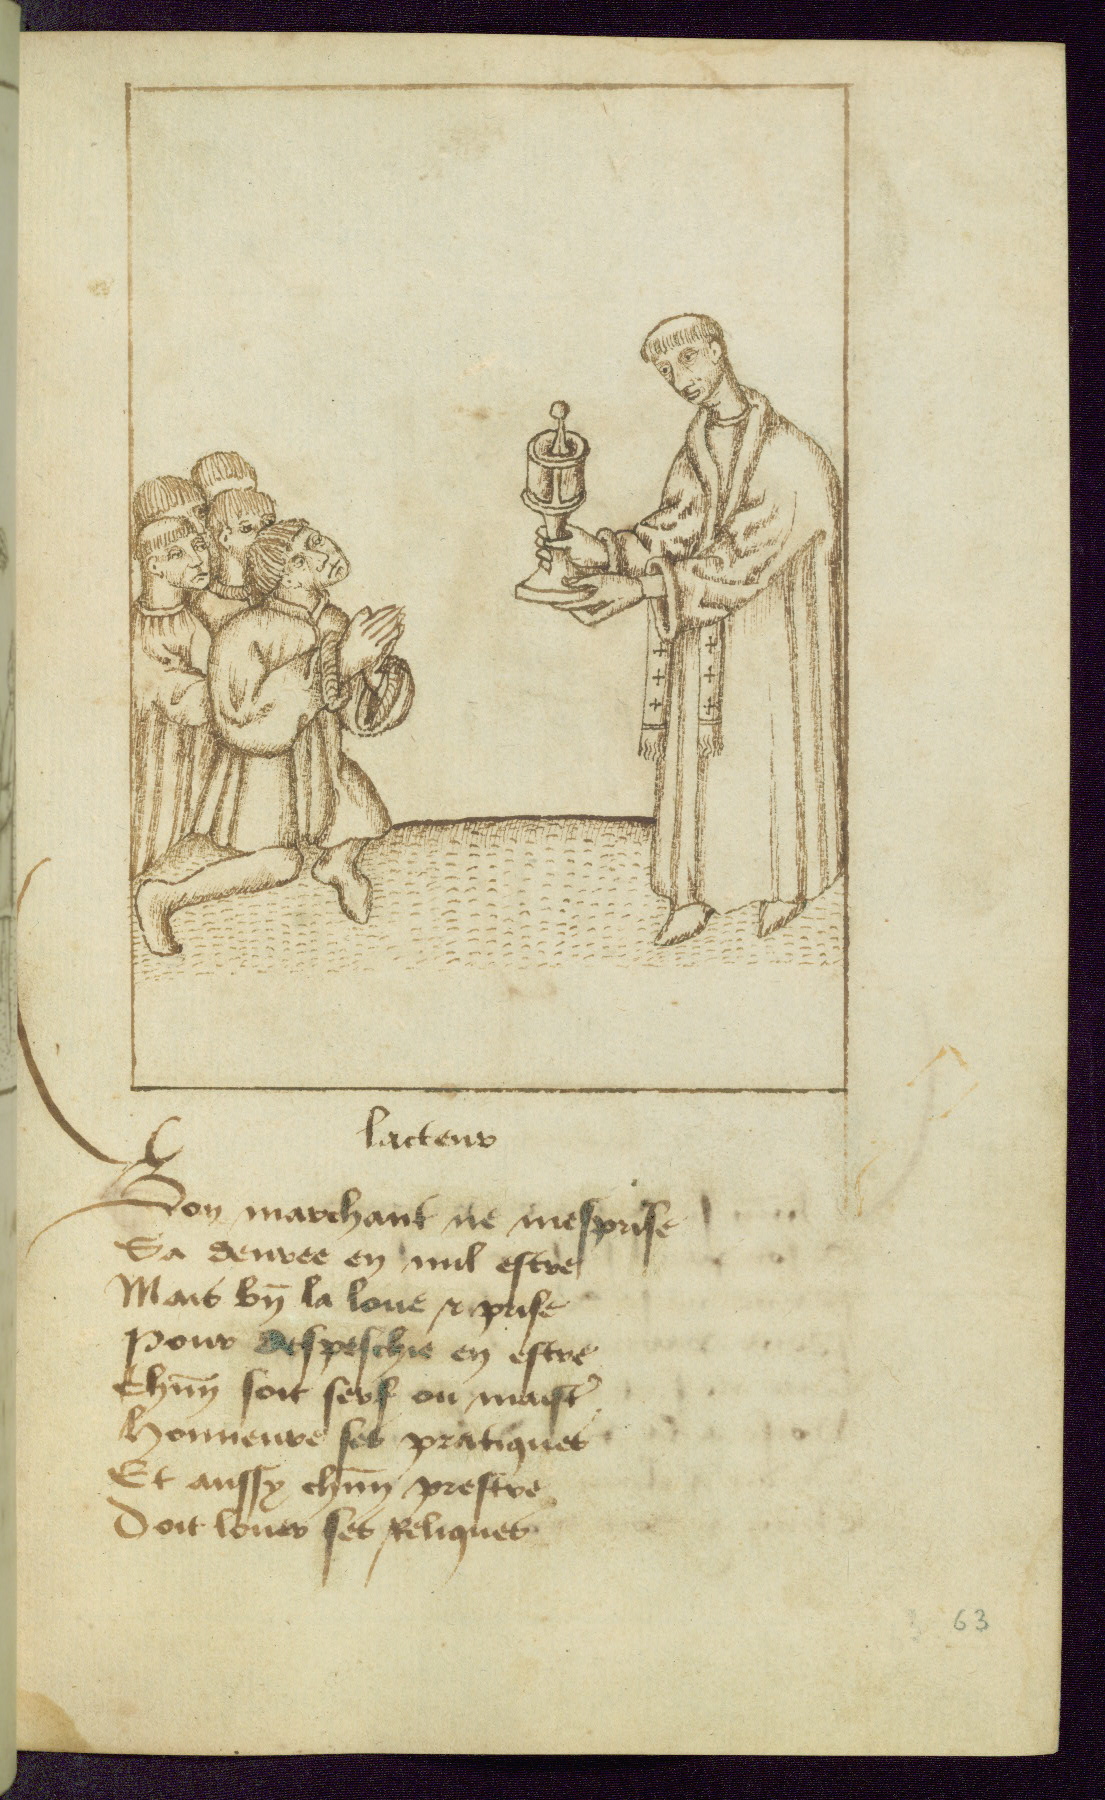 lacteur
Bon marchant ne mesprise
Sa denree en nul estre
Mais bn̄ la loue & prise
Pour despeschie en estre
Chūn soit serf ou maist'
Honneure ses pratiques
Et aussy chūn prestre
Doit louer ses Reliques
63